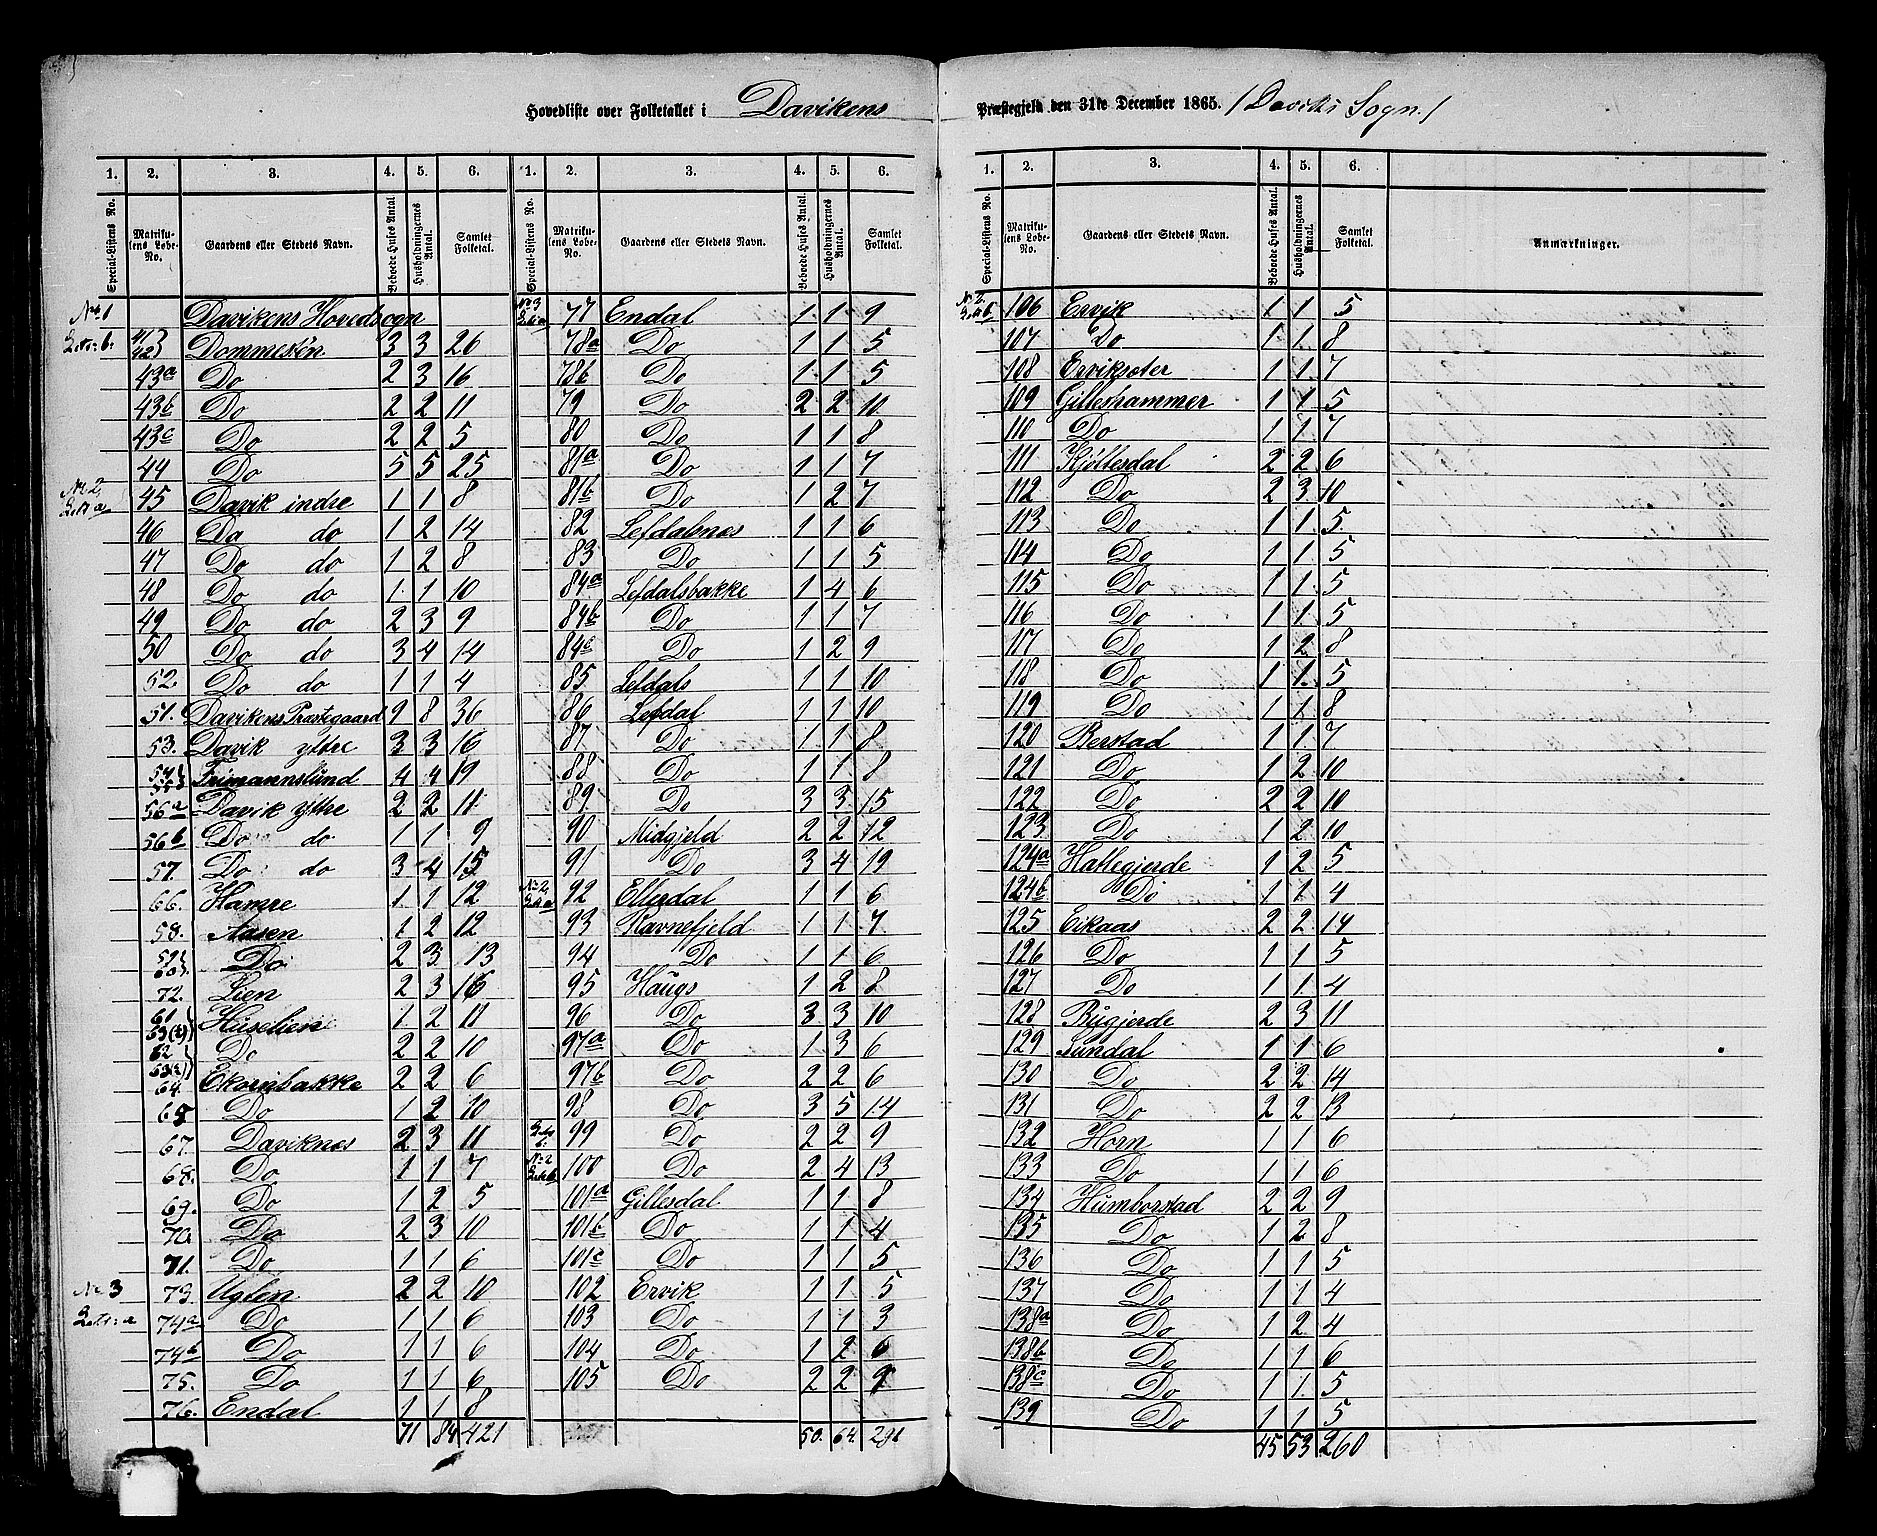 Hovedliste over Folketallet i Davikens Præstegjeld den 31te December 1865. (Daviks Sogn.)
1. 2. 3. 4. 5. 6.
Special-Listens No. Matrikulens Løbe-No. Gaardens eller Stedets Navn. Beboede Huses Antal. Husholdningernes Antal. Samlet Folketal.
No 1 Davikens Hovedsogn
Dommesten 3 3 26
43a Do 2 3 16
43b Do 2 2 11
43c Do 2 2 5
44 Do 5 5 25
No 2 45 Davik indre 1 1 8
46 Do do 1 2 14
47 Do do 1 2 8
48 Do do 1 1 10
49 Do do 2 3 9
50 Do do 3 4 14
52. Do do 1 1 4
51. Davikens Præstegaard 9 8 36
53. Davik ÿttre 3 3 16
54 55 Frimannslund 4 4 19
56a Davik ÿttre 2 2 11
56b Do do 1 1 9
57. Do do 3 4 15
66. Hamre 1 1 12
58. Aasen 1 2 12
59 60 Do 2 3 13
72. Lien 2 3 16
61 Huselien 1 2 11
62 Do 2 2 10
64. Ekornbakke 2 2 6
65 Do 1 2 10
67. Daviknes 2 3 11
68. Do 1 1 7
69. Do 1 2 5
70 Do 2 3 10
71. Do 1 1 6
No 3 73. Uglen 2 2 10
74a Do 1 1 6
74b Do 1 1 6
75. Do 1 1 6
76. Endal 1 1 8
71 84 421
1. 2. 3. 4. 5. 6.
Special-Listens No. Matrikulens Løbe-No. Gaardens eller Stedets Navn. Beboede Huses Antal. Husholdningernes Antal. Samlet Folketal.
No 3 77 Endal 1 1 9
78a Do 1 1 5
78b Do 1 1 5
79 Do 2 2 10
80 Do 1 1 8
81a Do 1 1 7
81b Do 1 2 7
82 Lefdalsnes 1 1 6
83 Do 1 1 5
84a Lefdalsbakke 1 4 6
84b Do 1 1 7
84c Do 1 2 9
85 Lefdals 1 1 10
86 Lefdal 1 1 10
87 Do 1 1 8
88 Do 1 1 8
89 Do 3 3 15
90 Midgjeld 2 2 12
91 Do 3 4 19
No 2 92 Ellesdal 1 1 6
93 Ravnefjeld 1 1 7
94 Do 1 1 6
95 Haugs 1 2 8
96 Do 3 3 10
97a Do 1 3 6
97b Do 2 2 6
98 Do 3 5 14
99 Do 2 2 9
No 2 100 Do 2 4 13
101a Gillesdal 1 1 8
101b Do 1 1 4
101c Do 1 1 5
102 Ervik 1 1 5
103 Do 1 1 3
104 Do 1 2 6
105 Do 2 2 9
50. 64. 291
1. 2. 3. 4. 5. 6.
Special-Listens No. Matrikulens Løbe-No. Gaardens eller Stedets Navn. Beboede Huses Antal. Husholdningernes Antal. Samlet Folketal. Anmærkninger.
No 2. 106 Ervik 1 1 5
107 Do 1 1 8
108 Erviksæter 1 1 7
109 Gilleshammer 1 1 5
110 Do 1 1 7
111 Kjøllesdal 2 2 6
112 Do 2 3 10
113 Do 1 1 5
114 Do 1 1 5
115 Do 1 1 5
116 Do 1 1 5
117 Do 1 2 8
118 Do 1 1 5
119 Do 1 1 8
120 Berstad 1 1 7
121 Do 1 2 10
122 Do 2 2 10
123 Do 1 2 10
124a Hattegjerde 1 2 5
124b Do 1 1 4
125 Eikaas 2 2 14
126 Do 1 1 5
127 Do 1 1 4
128 Rugjerde 2 3 11
129 Sundal 1 1 6
130 Do 2 2 14
131 Do 2 2 13
132 Horn 1 1 6
133 Do 1 1 6
134 Humborstad 2 2 9
135 Do 1 2 8
136 Do 1 1 5
137 Do 1 1 4
138a Do 1 2 4
138b Do 1 1 6
138c Do 1 1 5
139 Do 1 1 5
45 53 260